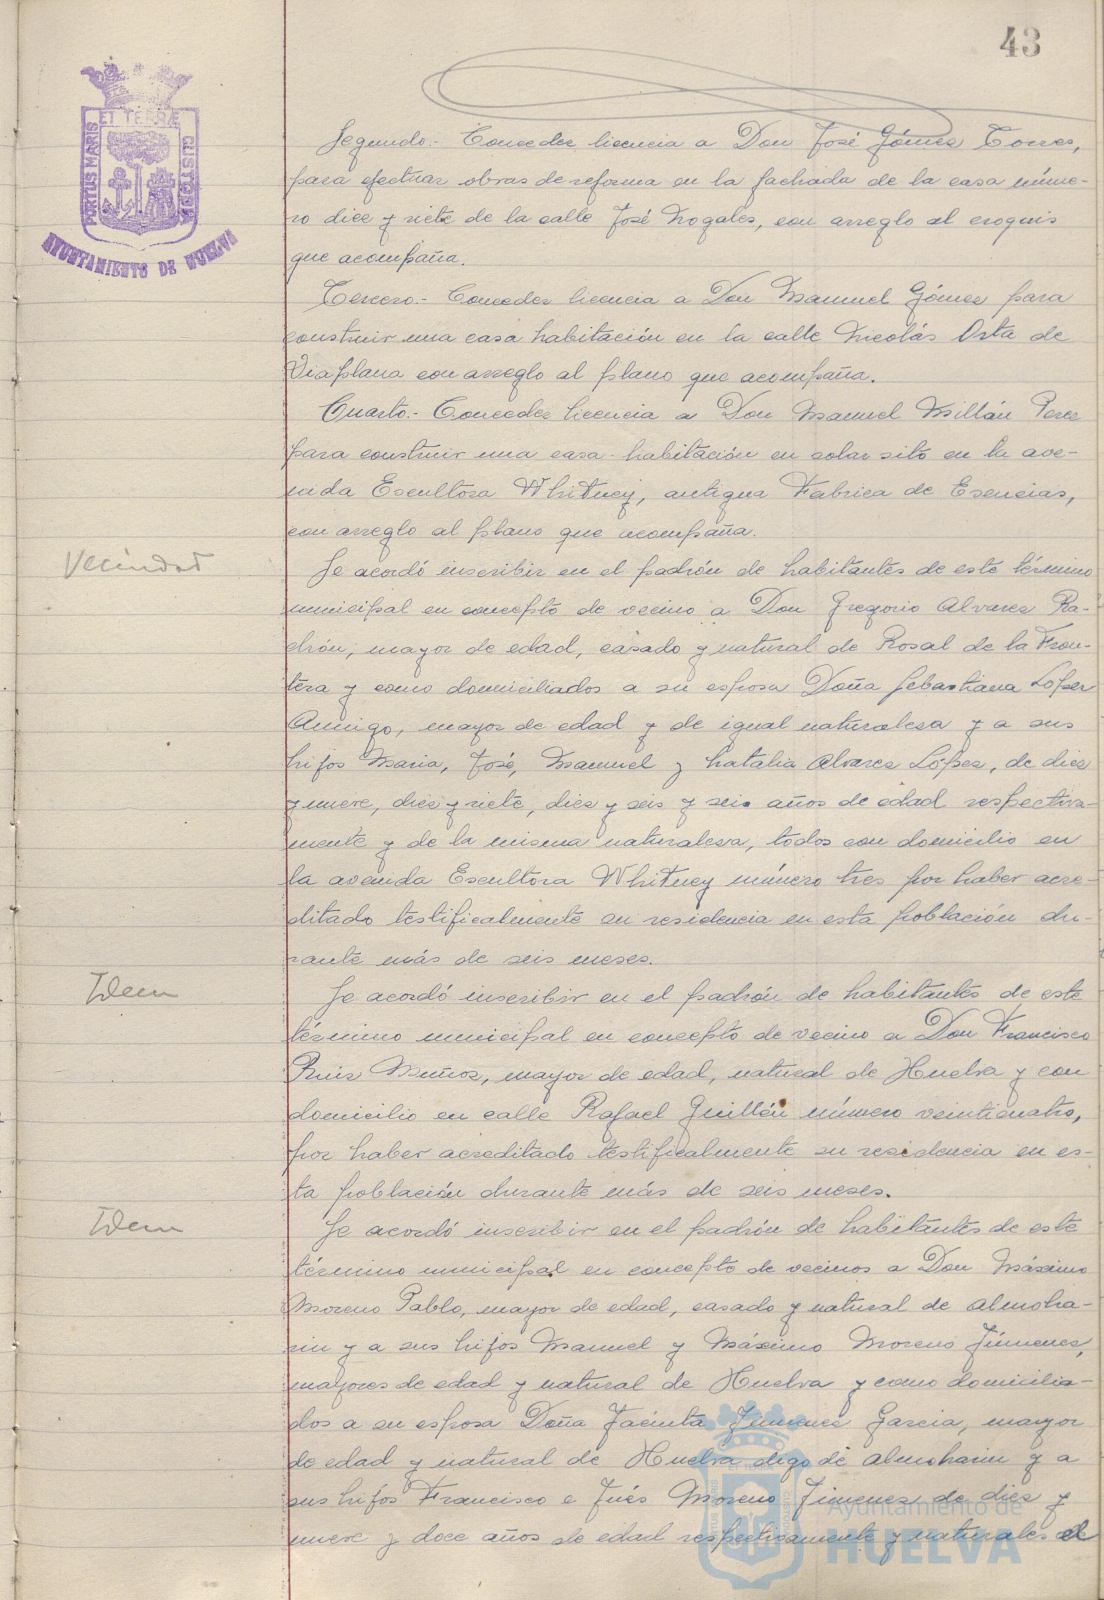 43
PORTUS MARIS
ET TERRÆ
CUSTODIA
AYUNTAMIENTO DE HUELVA
Segundo.- Conceder licencia a Don José Gómez Torres,
para efectuar obras de reforma en la fachada de la casa núme-
ro diez y siete de la calle José Nogales, con arreglo al croquis
que acompaña.
Tercero.- Conceder licencia a Don Manuel Gómez para
construir una casa habitación en la calle Nicolás Orta de
Viaplana con arreglo al plano que acompaña.
Cuarto.- Conceder licencia a Don Manuel Millán Perez
para construir una casa-habitación en solar sito en la ave-
nida Escultora Whitney, antigua Fabrica de Esencias,
con arreglo al plano que acompaña.
Vecindad
Se acordó inscribir en el padrón de habitantes de este término
municipal en concepto de vecino a Don Gregorio Alvarez Ra-
drón, mayor de edad, casado y natural de Rosal de la Fron-
tera y como domiciliados a su esposa Doña Sebastiana López
mayor de edad y de igual naturaleza y a sus
hijos Maria, José, Manuel y Natalia Alvarez López, de diez
y nueve, diez y siete, diez y seis y seis años de edad respectiva-
mente y de la misma naturaleza, todos con domicilio en
la avenida Escultora Whitney número tres por haber acre-
ditado testificalmente su residencia en esta población du-
rante más de seis meses.
Idem
Se acordó inscribir en el padrón de habitantes de este
término municipal en concepto de vecino a Don Francisco
Ruiz Muñoz, mayor de edad, natural de Huelva y con
domicilio en calle Rafael Guillén número veinticuatro,
por haber acreditado testificalmente su residencia en es-
ta población durante más de seis meses.
Idem
Se acordó inscribir en el padrón de habitantes de este
término municipal en concepto de vecinos a Don Máximo
Moreno Pablo, mayor de edad, casado y natural de Almoha-
rin y a sus hijos Manuel y Máximo Moreno Jimenez,
mayores de edad y natural de Huelva y como domicilia-
dos a su esposa Doña Jacinta Jimenez Garcia, mayor
de edad y natural de Huelva digo de Almoharin y a
sus hijos Francisco e Inés Moreno Jimenez de diez y
nueve y doce años de edad respectivamente y naturales el
Ayuntamiento de
HUELVA